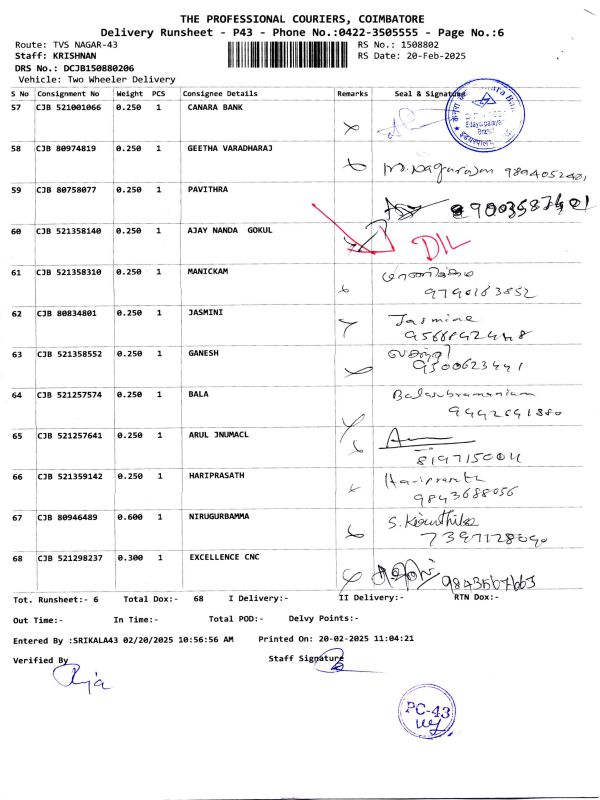 THE PROFESSIONAL COURIERS, COIMBATORE
Delivery Runsheet - P43 - Phone No.:0422-3505555 - Page No.:6
Route: TVS NAGAR-43 RS No.: 1508802
Staff: KRISHNAN RS Date: 20-Feb-2025
DRS No.: DCJB150880206
Vehicle: Two Wheeler Delivery
S No Consignment No Weight PCS Consignee Details Remarks Seal & Signature
57 CJB 521001066 0.250 1 CANARA BANK
58 CJB 80974819 0.250 1 GEETHA VARADHARAJ
M. Nagarajan 9894052401
59 CJB 80758077 0.250 1 PAVITHRA
60 CJB 521358140 0.250 1 AJAY NANDA GOKUL
D/L
61 CJB 521358310 0.250 1 MANICKAM
9790163852
62 CJB 80834801 0.250 1 JASMINI
Jasmine
9566842448
63 CJB 521358552 0.250 1 GANESH
9500623441
64 CJB 521257574 0.250 1 BALA
Balasubramaniam
9442641880
65 CJB 521257641 0.250 1 ARUL JNUMACL
66 CJB 521359142 0.250 1 HARIPRASATH
Hariprasath
9843688056
67 CJB 80946489 0.600 1 NIRUGURBAMMA
S. Keerthika
68 CJB 521298237 0.300 1 EXCELLENCE CNC
Tot. Runsheet:- 6 Total Dox:- 68 I Delivery:- II Delivery:- RTN Dox:-
Out Time:- In Time:- Total POD:- Delvy Points:-
Entered By :SRIKALA43 02/20/2025 10:56:56 AM Printed On: 20-02-2025 11:04:21
Verified By Staff Signature
PC-43